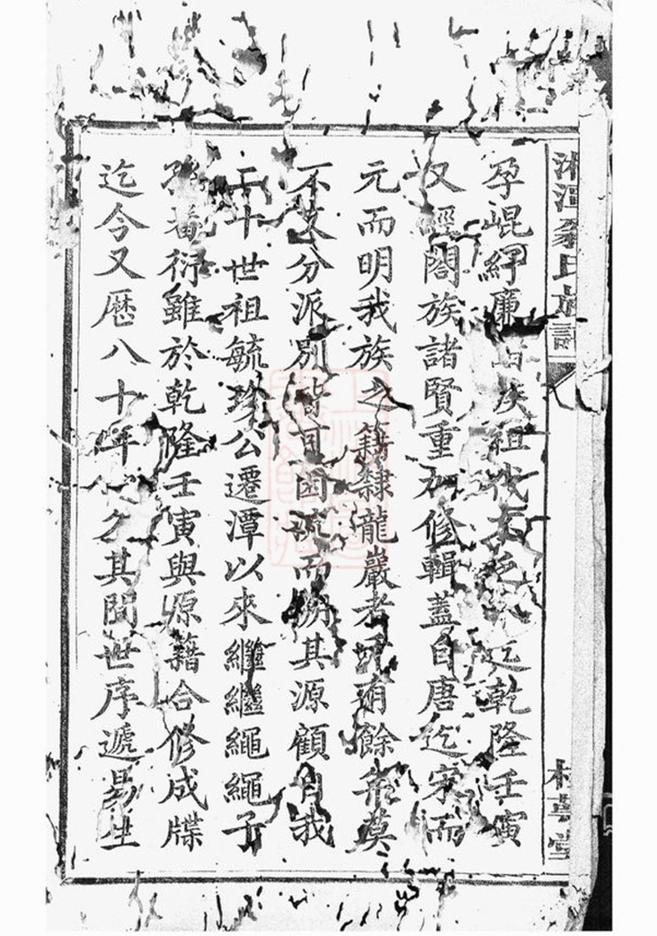 湘潭翁氏族譜
孕崐紆廉 祖代不乏 迄乾隆壬寅
又經閤族諸賢重加修輯蓋自唐迄宋而
元而明我族之籍隸龍巖者 有餘 莫
不支分派別皆可因流而溯其源顧自我
二十世祖毓珍公遷潭以來繼繼繩繩子
孫蕃衍雖於乾隆壬寅與原籍合修成牒
迄今又歷八十年 久其間世序遞易生